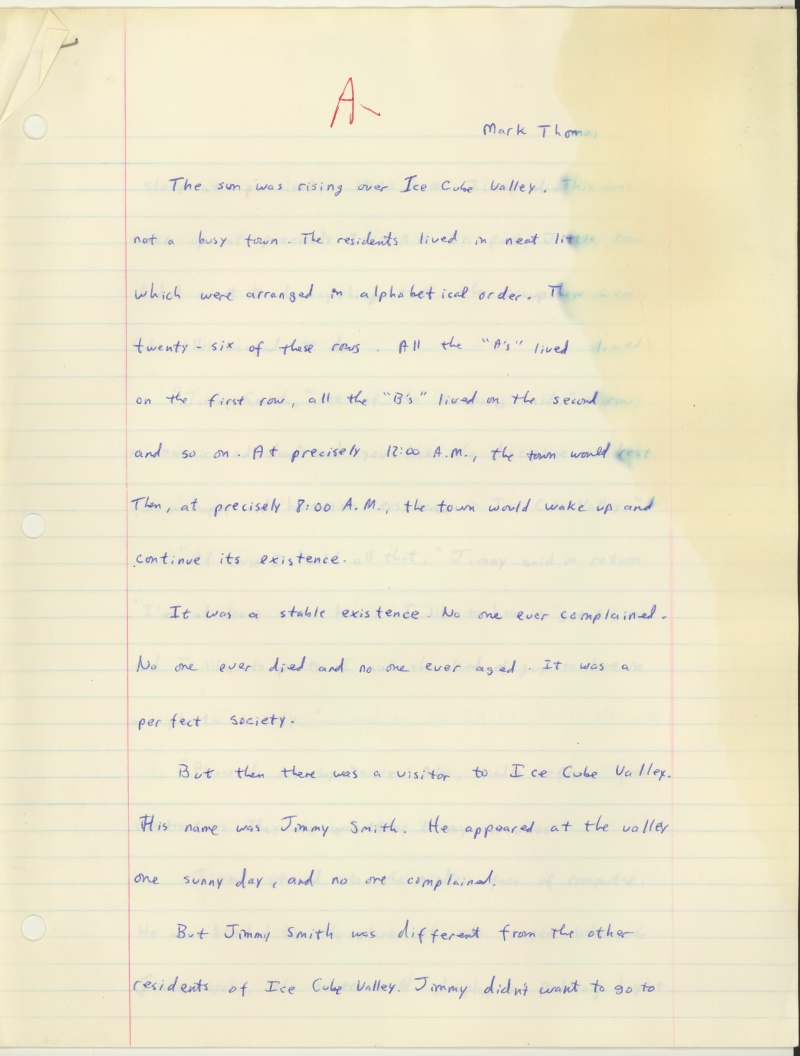 A-
Mark Thomas
The sun was rising over Ice Cube Valley. This was
not a busy town. The residents lived in neat little
which were arranged in alphabetical order.
twenty-six of these rows. All the "A's" lived
on the first row, all the "B's" lived on the second
and so on. At precisely 12:00 A.M., the town would rest
Then, at precisely 8:00 A.M., the town would wake up and
continue its existence.
It was a stable existence. No one ever complained.
No one ever died and no one ever aged. It was a
perfect society.
But then there was a visitor to Ice Cube Valley.
His name was Jimmy Smith. He appeared at the valley
one sunny day, and no one complained.
But Jimmy Smith was different from the other
residents of Ice Cube Valley. Jimmy didn't want to go to